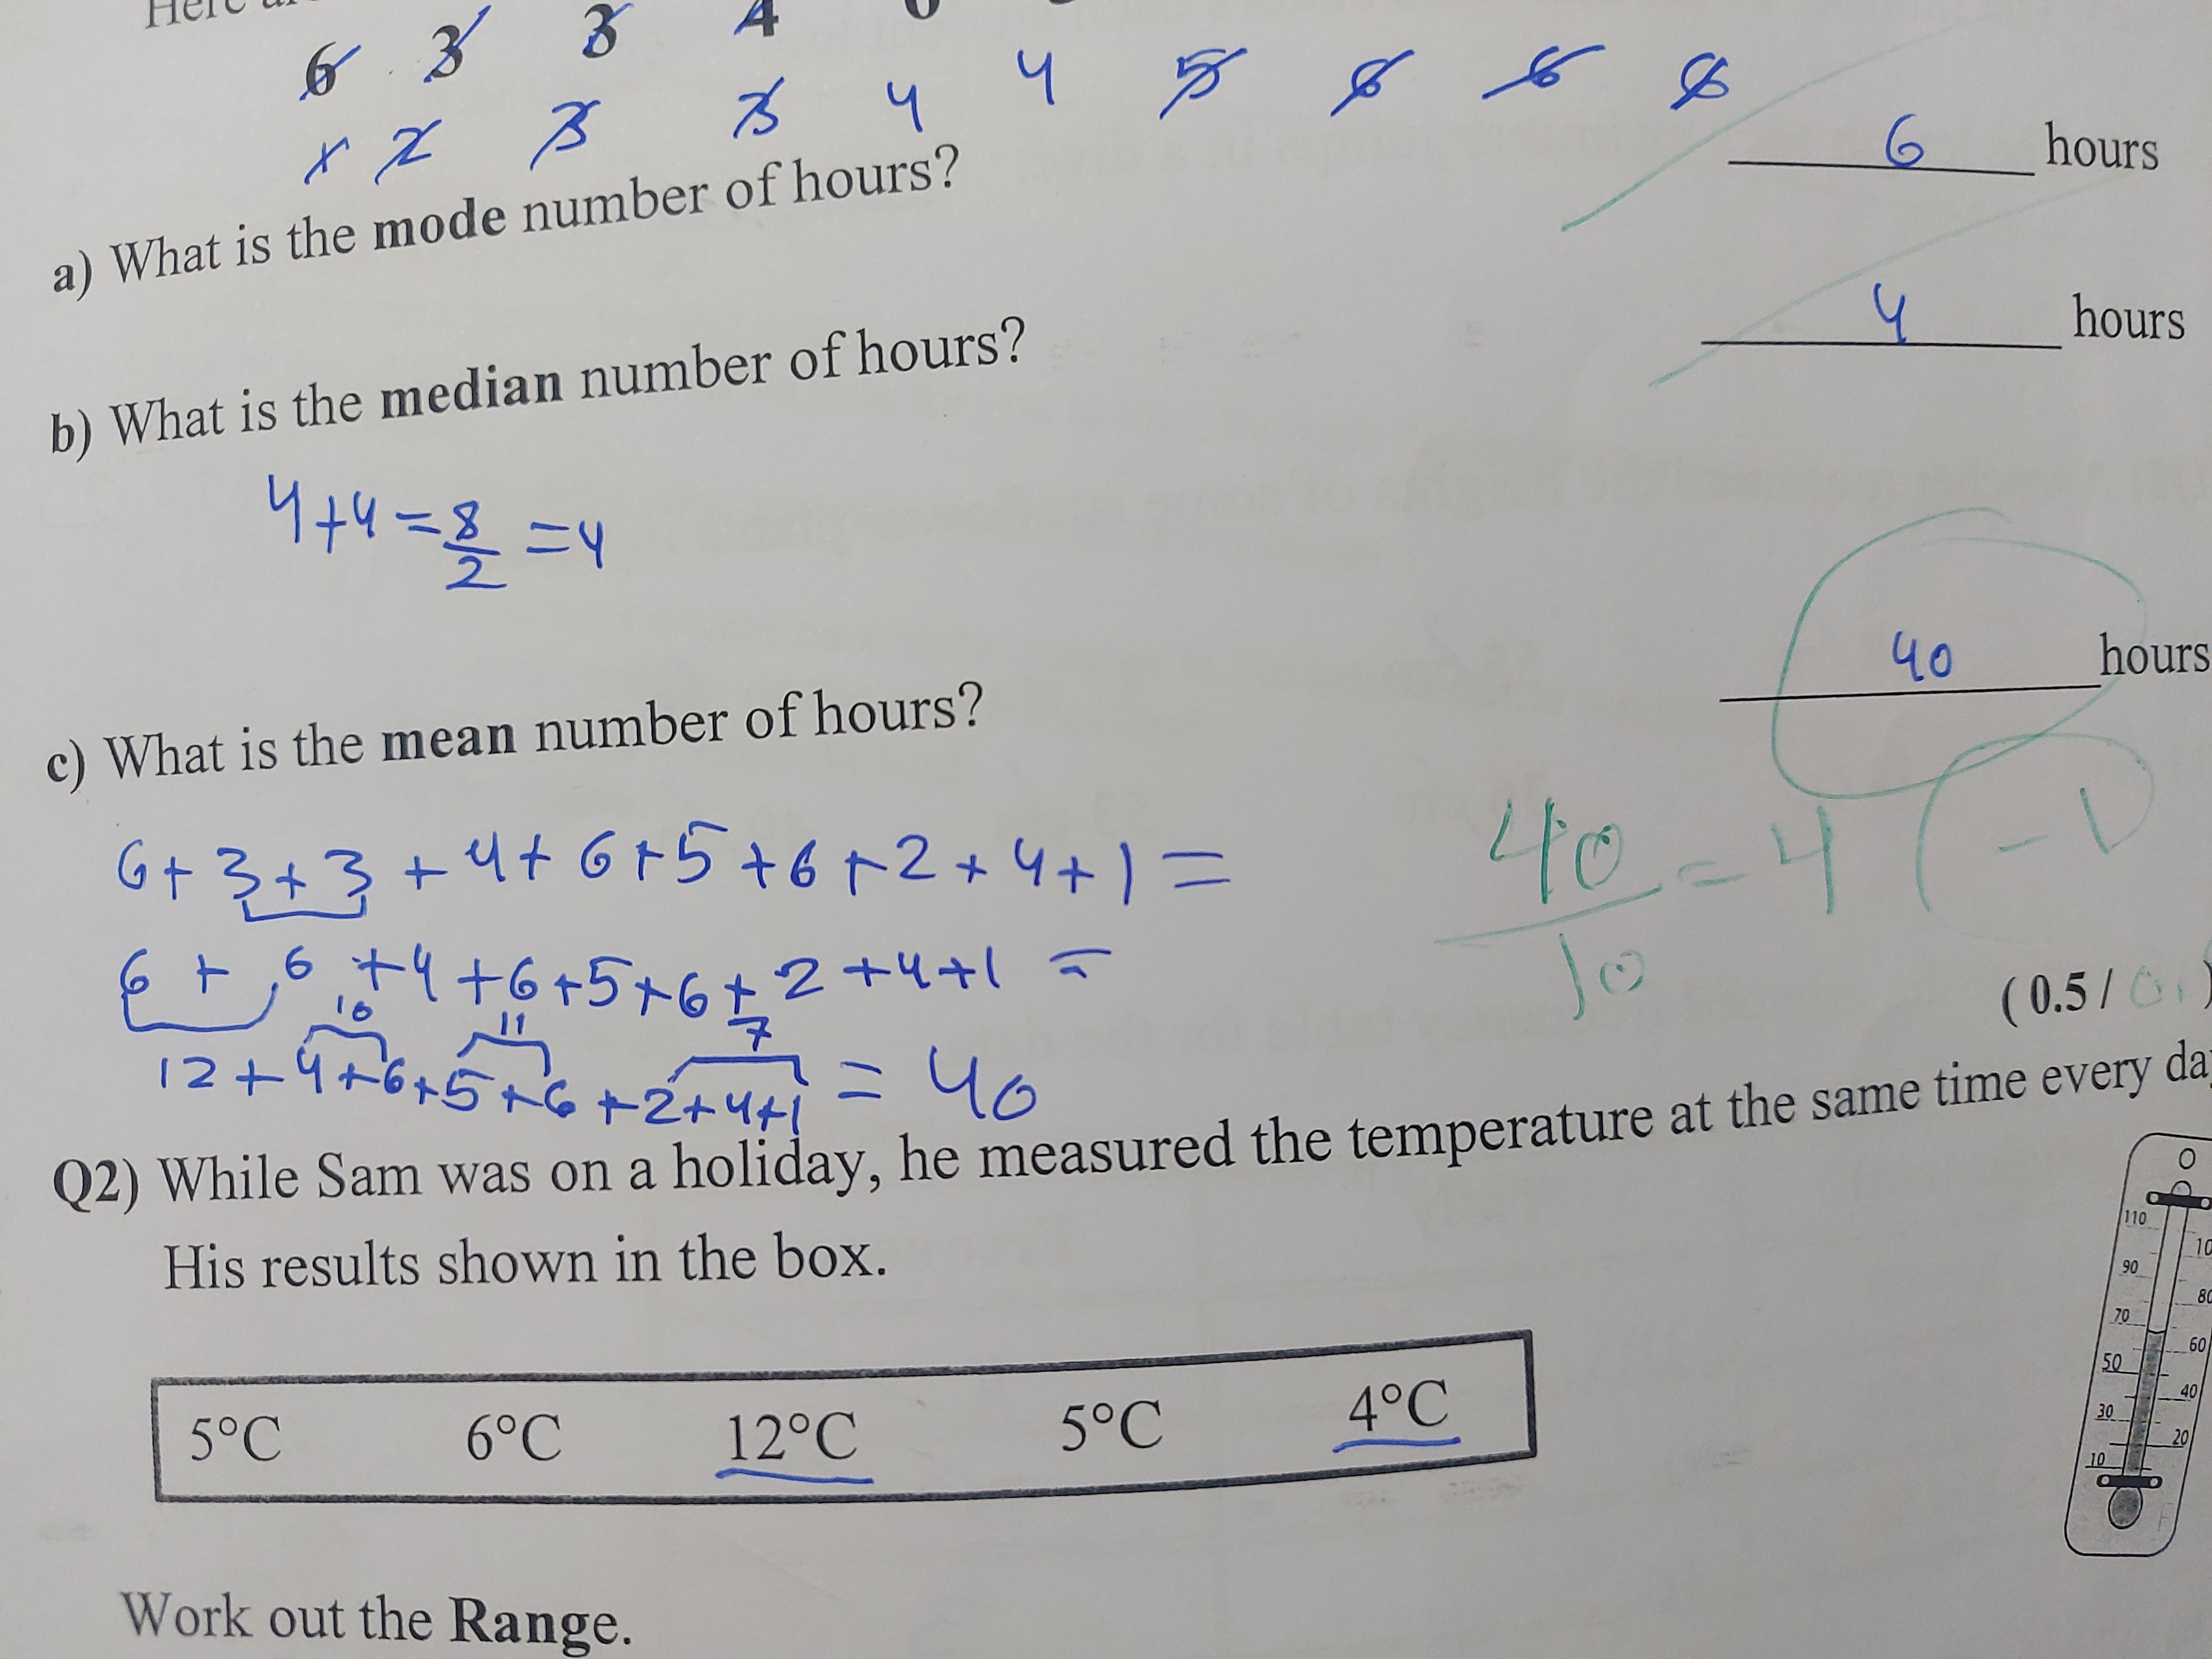 Here
6 3 3 4
1 2 3 3 4 4 5 6 6 6
a) What is the mode number of hours?
6 hours
b) What is the median number of hours?
4 hours
4+4=8/2=4
c) What is the mean number of hours?
40 hours
6+3+3+4+6+5+6+2+4+1=
40/10=4 -1
6+6+4+6+5+6+2+4+1=
10 11 7
12+4+6+5+6+2+4+1=40
(0.5/
Q2) While Sam was on a holiday, he measured the temperature at the same time every
His results shown in the box.
5°C 6°C 12°C 5°C 4°C
110
90
70
50
30
10
80
60
40
20
Work out the Range.